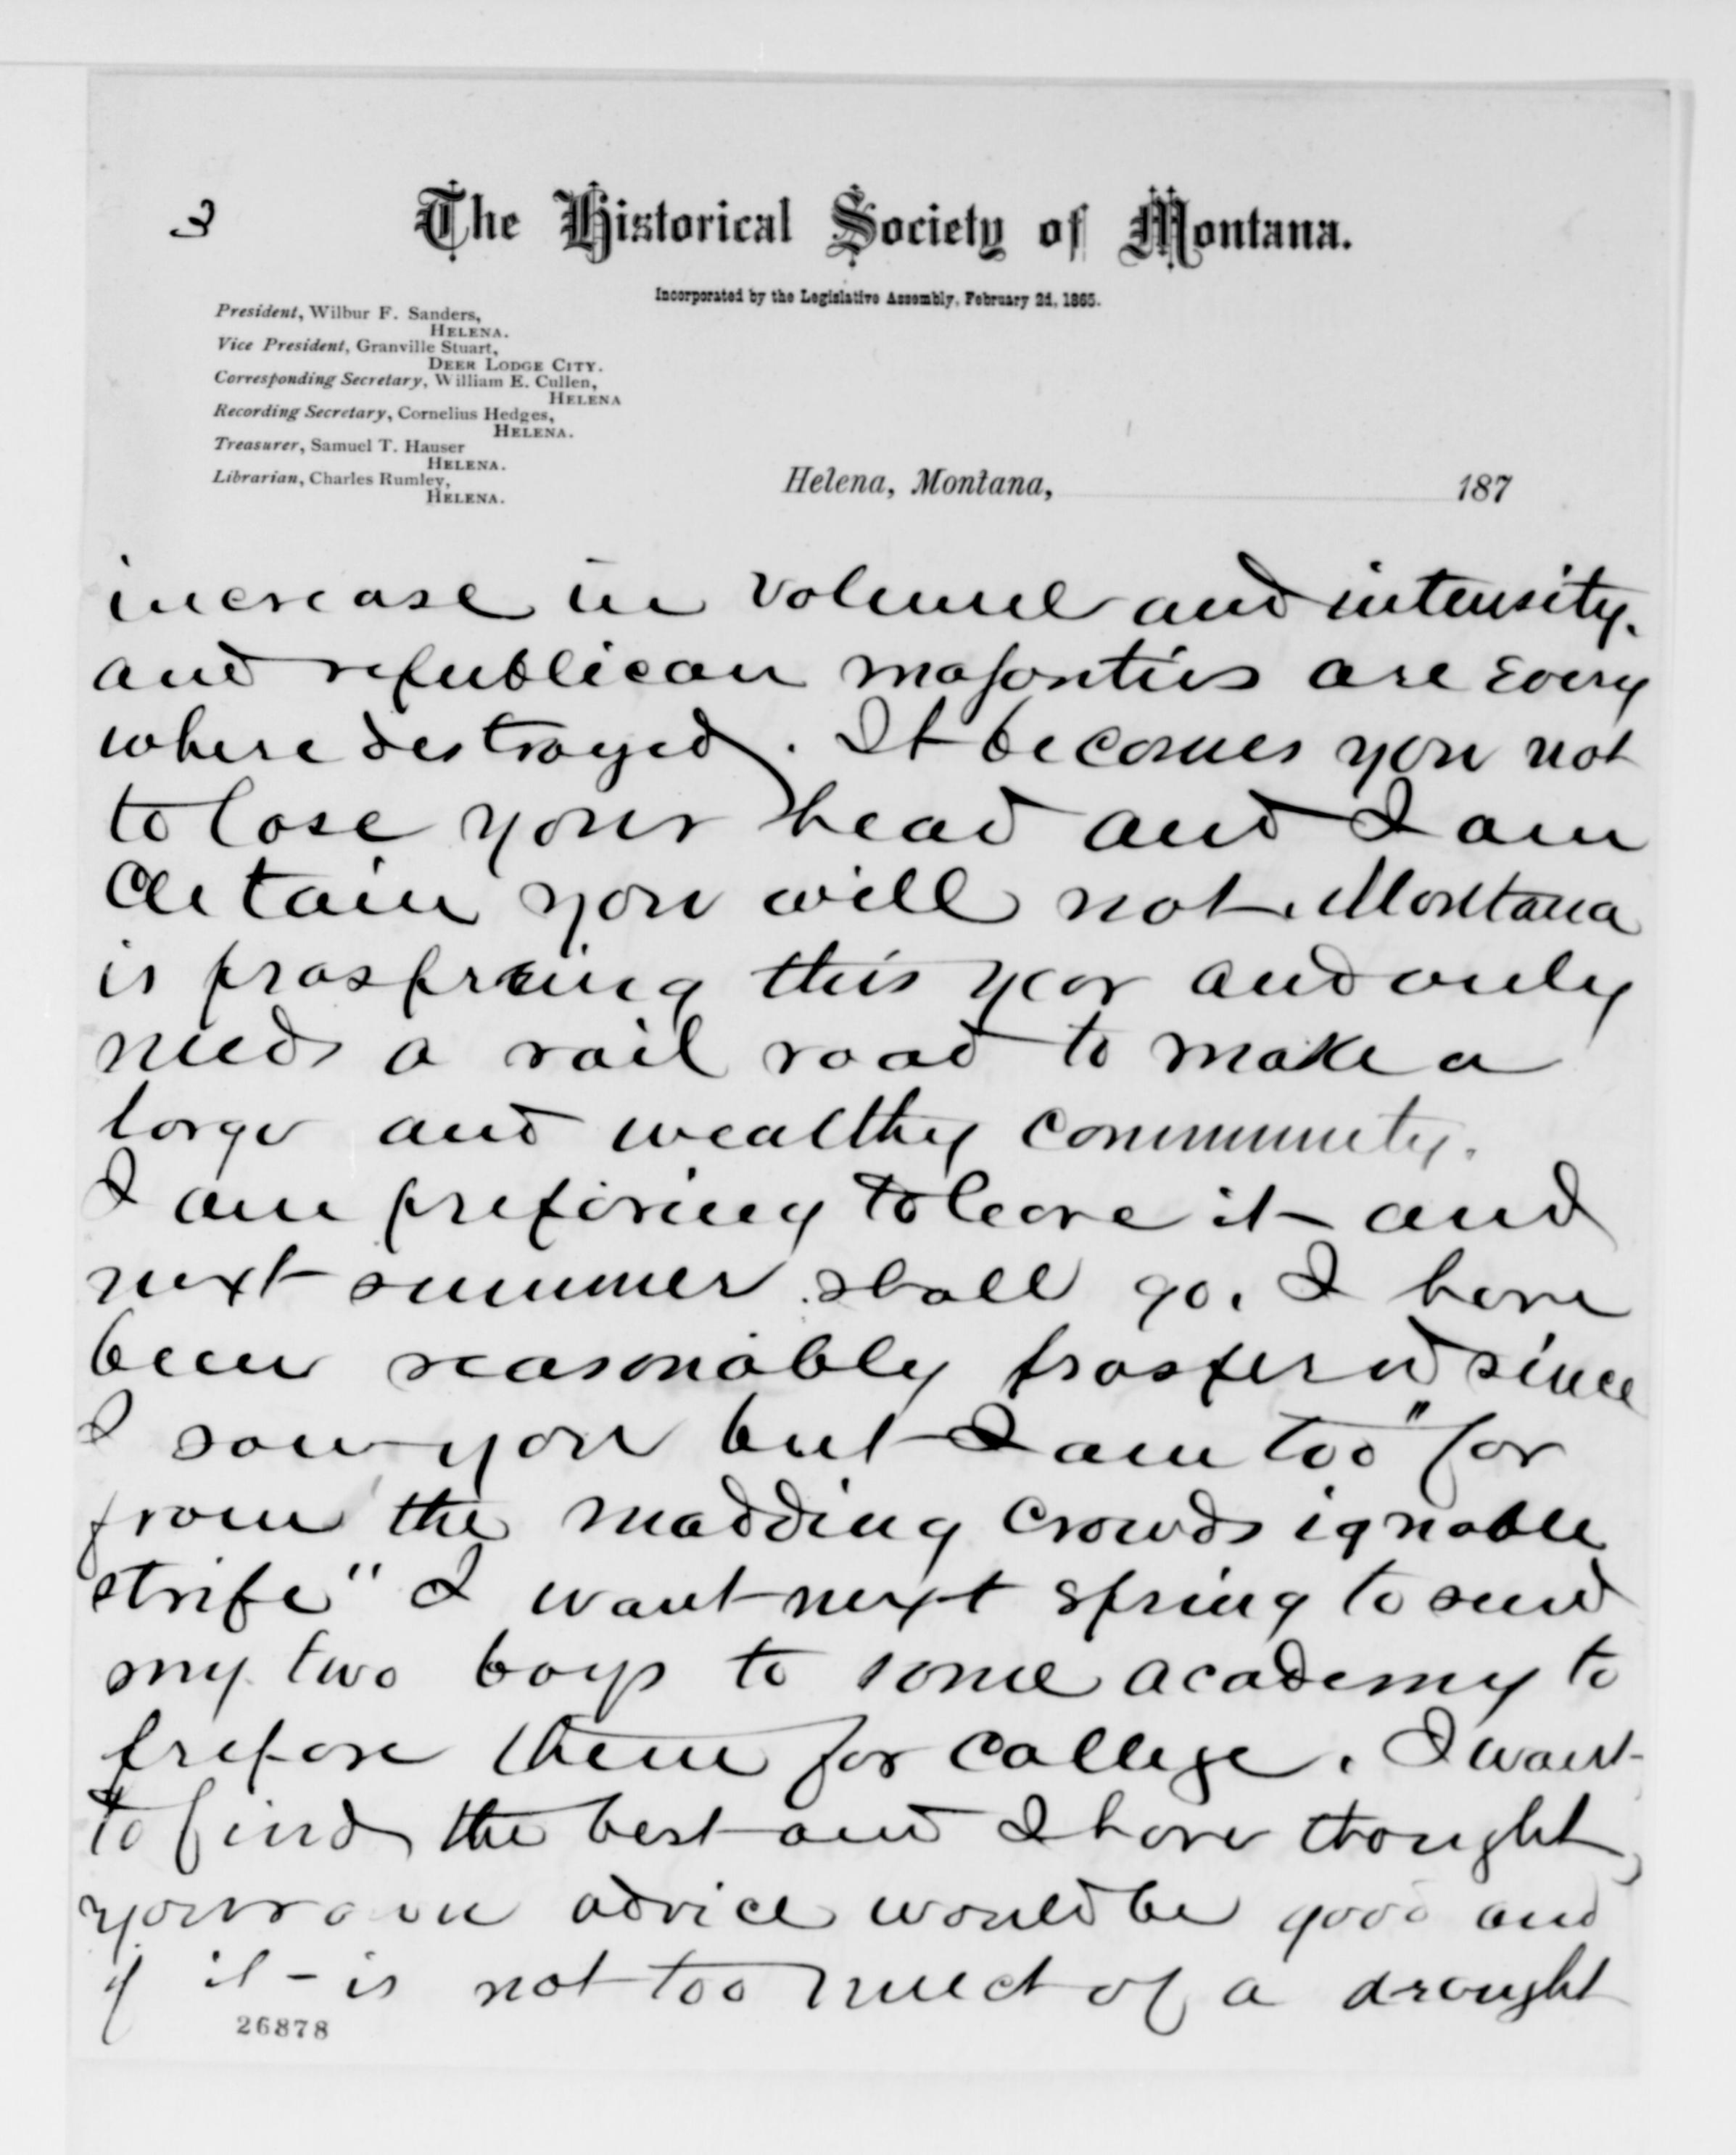 3
The Historical Society of Montana.
Incorporated by the Legislative Assembly, February 2d, 1865.
President, Wilbur F. Sanders,
HELENA.
Vice President, Granville Stuart,
DEER LODGE CITY.
Corresponding Secretary, William E. Cullen,
HELENA
Recording Secretary, Cornelius Hedges,
HELENA.
Treasurer, Samuel T. Hauser
HELENA.
Librarian, Charles Rumley,
HELENA.
Helena, Montana, 187
increase in volume and intensity.
and republican majorities are every
where destroyed. It becomes you not
to lose your head and I am
certain you will not. Montana
is prospering this year and only
needs a rail road to make a
large and wealthy community.
I am preparing to leave it and
next summer shall go. I have
been reasonably prospered since
I saw you but I am too "far
from the madding crowds ignoble
strife" I want next spring to send
my two boys to some academy to
prepare them for college. I want
to find the best and I have thought
your own advice would be good and
if it is not too much of a draught
26878